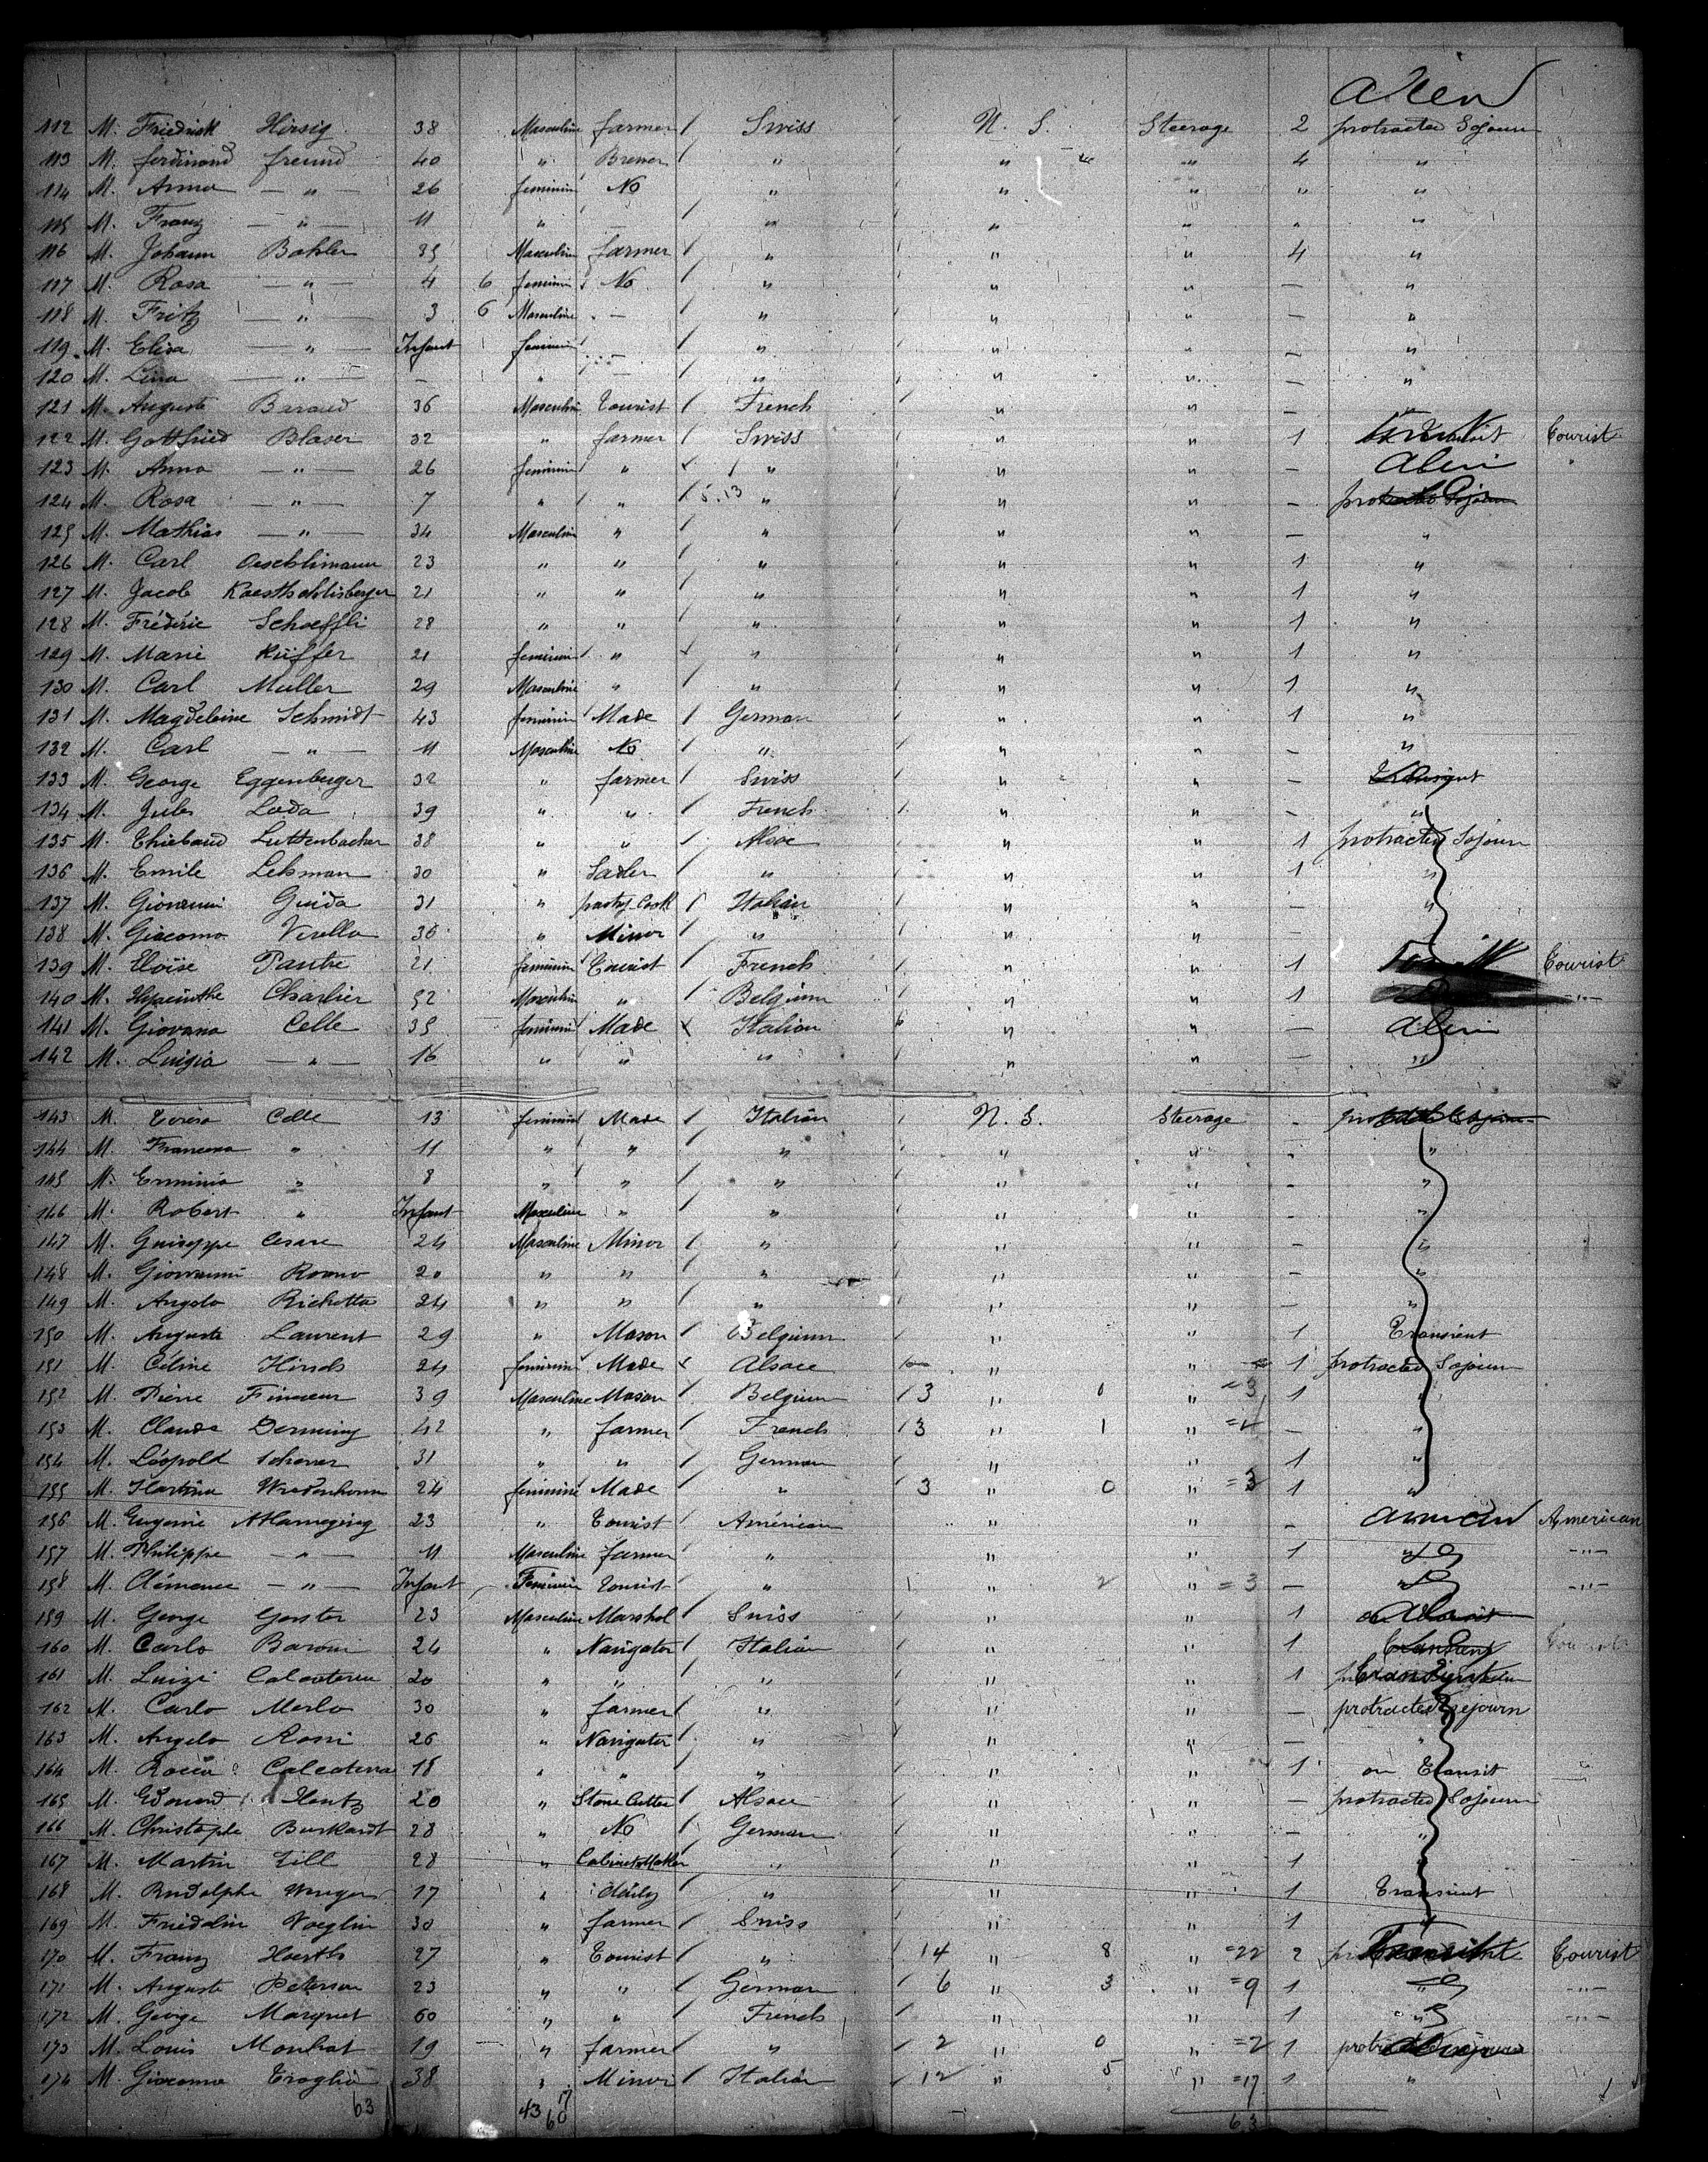 Alien
112 M. Friedrick Hirsig 38 Masculine farmer / Swiss N. S. Steerage 2 protracted Sojourn
113 M. ferdinand freund 40 " Brewer / " " " 4 "
114 M. Anna — " — 26 feminin No " " " " "
115 M. Franz — " — 11 " — / " " " " "
116 M. Johann Bohler 35 Masculine farmer / " " " 4 "
117 M. Rosa — " — 4 6 feminin No / " " " — "
118 M. Fritz — " — 3 6 Masculine — / " " " — "
119 M. Elisa — " — Infant feminin " " " — "
120 M. Lina — " — — " — / " " " — "
121 M. Auguste Baraud 36 Masculin Tourist / French " " — "
122 M. Gottfried Blaser 32 " farmer / Swiss " " 1 Tourist
123 M. Anna — " — 26 feminin " " " " — Alien
124 M. Rosa — " — 7 " " / 5.13 " " " —
125 M. Mathias — " — 34 Masculin " / " " " — "
126 M. Carl Oeschlimann 23 " " / " " " 1 "
127 M. Jacob 21 " " / " " " 1 "
128 M. Frédéric Schoeffli 28 " " / " " " 1 "
129 M. Marie Küffer 21 feminin " " " " 1 "
130 M. Carl Muller 29 Masculine " / " " " 1 "
131 M. Magdeleine Schmidt 43 feminin Made / German " " 1 "
132 M. Carl — " — 11 Masculine No / " " " — "
133 M. George Eggenberger 32 " farmer / Swiss " " —
134 M. Jules Loda 39 " " / French " " — "
135 M. Thiebaud Luttenbacher 38 " " / Alsace " " 1 protracted Sojourn
136 M. Emile Lehman 30 " Sadler / " " " 1 "
137 M. Giovanni Guida 31 " pastry Cook / Italian " " — "
138 M. Giacomo Virello 30 " Minor / " " " — "
139 M. Eloïse 21 feminin Tourist / French " " 1 Tourist
140 M. Hyacinthe Charlier 52 Masculin " / Belgium " " 1 — " —
141 M. Giovana Celle 35 feminin Made Italian " " — Alien
142 M. Luigia — " — 16 " " " " " — "
143 M. Teresa Celle 13 feminin Made / Italian N. S. Steerage -
144 M. Francesca " 11 " " / " " " - "
145 M. Erminia " 8 " " / " " " - "
146 M. Robert " Infant Masculine " / " " " - "
147 M. Guiseppe Cesare 24 Masculine Minor / " " " — "
148 M. Giovanni Romo 20 " " / " " " — "
149 M. Angelo Richetta 24 " " / " " " — "
150 M. Auguste Laurent 29 " Mason / Belgium " " 1 Transient
151 M. Céline Hirsch 24 feminin Made Alsace " " 1 protracted Sojourn
152 M. Pierre 39 Masculine Mason / Belgium / 3 " 0 " =3 1 "
153 M. Claude 42 " farmer / French / 3 " 1 " =4 — "
154 M. Léopold Scherer 31 " " / German " " 1 "
155 M. 24 feminine Made / " 3 " 0 " =3 1 "
156 M. Eugenie 23 " Tourist Américan " " - American American
157 M. Philippe — " — 11 Masculine farmer " " " 1 " — " —
158 M. Clémence — " — Infant Feminin Tourist " 1 " 2 " =3 — " — " —
159 M. George Gerster 23 Masculine Marshal / Swiss " " 1
160 M. Carlo Baroni 24 " Navigator / Italian " " 1 Tourist
161 M. Luigi Calcaterra 20 " " " " " 1
162 M. Carlo Merlo 30 " farmer / " " " — protracted Sejourn
163 M. Angelo Rossi 26 " Navigator / " " " — "
164 M. Calcaterra 18 " " " " " 1 on Transit
165 M. Edouard Hantz 20 " Stone Cutter / Alsace " " — protracted Sojourn
166 M. Christophe Burkardt 28 " No / German " " — "
167 M. Martin Zill 28 " Cabinet Maker " " " 1 "
168 M. Rudolphe Wenger 17 " / " " " 1 Transient
169 M. Friédolin Voeglin 30 " farmer / Swiss " " 1 "
170 M. Franz Hoerth 27 " Tourist / " 14 " 8 " =22 2 Tourist
171 M. Auguste Peterson 23 " " / German / 6 " 3 " =9 1 " — " —
172 M. George Marquet 60 " " / French " " 1 " — " —
173 M. Louis 19 " farmer / " 2 " 0 " =2 1
174 M. Giacomo Troglio 38 " Minor / Italian / 12 " 5 " =17 1 "
63 43 17 60 63